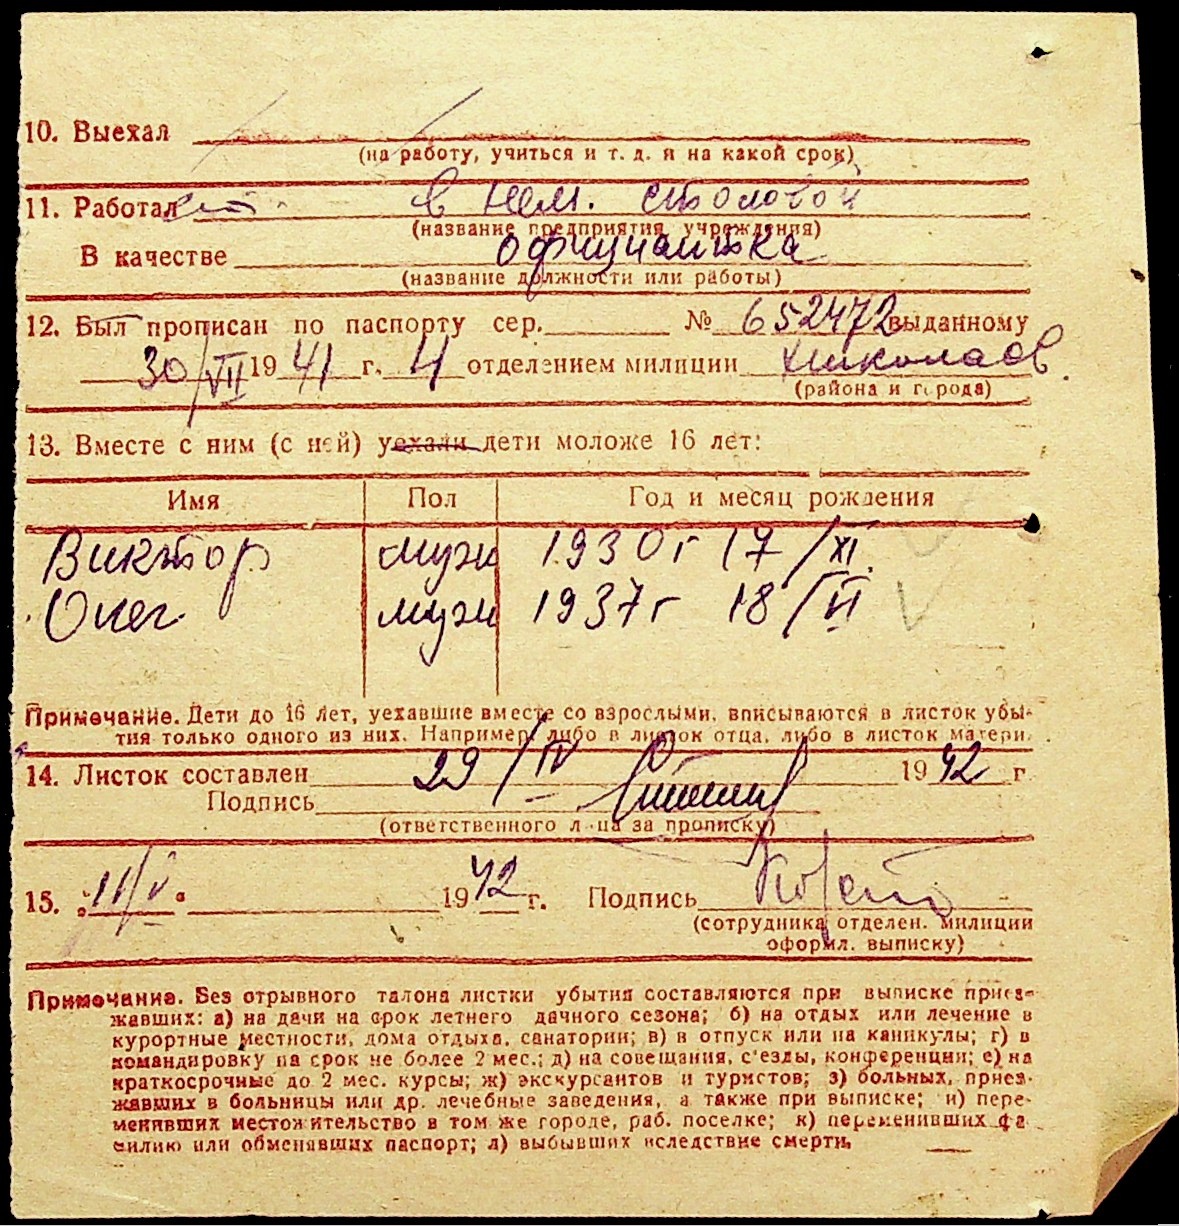 10. Выехал
(на работу, учиться и т. д. и на какой срок)
11. Работал в нем. столовой
(название предприятия учреждения)
В качестве официантка
(название должности или работы)
12. Был прописан по паспорту сер. № 652472 выданному
30/VII 1941 г. 4 отделением милиции Николаев
(района и города)
13. Вместе с ним (с ней) уехали дети моложе 16 лет:
Имя Пол Год и месяц рождения
Виктор муж 1930 г 17/XI
Олег муж 1937 г 18/VI
Примечание. Дети до 16 лет, уехавшие вместе со взрослыми, вписываются в листок убы-
тия только одного из них. Например, либо в листок отца, либо в листок матери.
14. Листок составлен 29/IV 1942 г
Подпись
(ответственного лица за прописку)
15. „11/V" 1942 г. Подпись
(сотрудника отделен. милиции
оформл. выписку)
Примечание. Без отрывного талона листки убытия составляются при выписке приез-
жавших: а) на дачи на срок летнего дачного сезона; б) на отдых или лечение в
курортные местности, дома отдыха, санатории; в) в отпуск или на каникулы; г) в
командировку на срок не более 2 мес.; д) на совещания, с'езды, конференции; е) на
краткосрочные до 2 мес. курсы; ж) экскурсантов и туристов; з) больных, приез-
жавших в больницы или др. лечебные заведения, а также при выписке; и) пере-
менивших местожительство в том же городе, раб. поселке; к) переменивших фа
милию или обменявших паспорт; л) выбывших вследствие смерти.